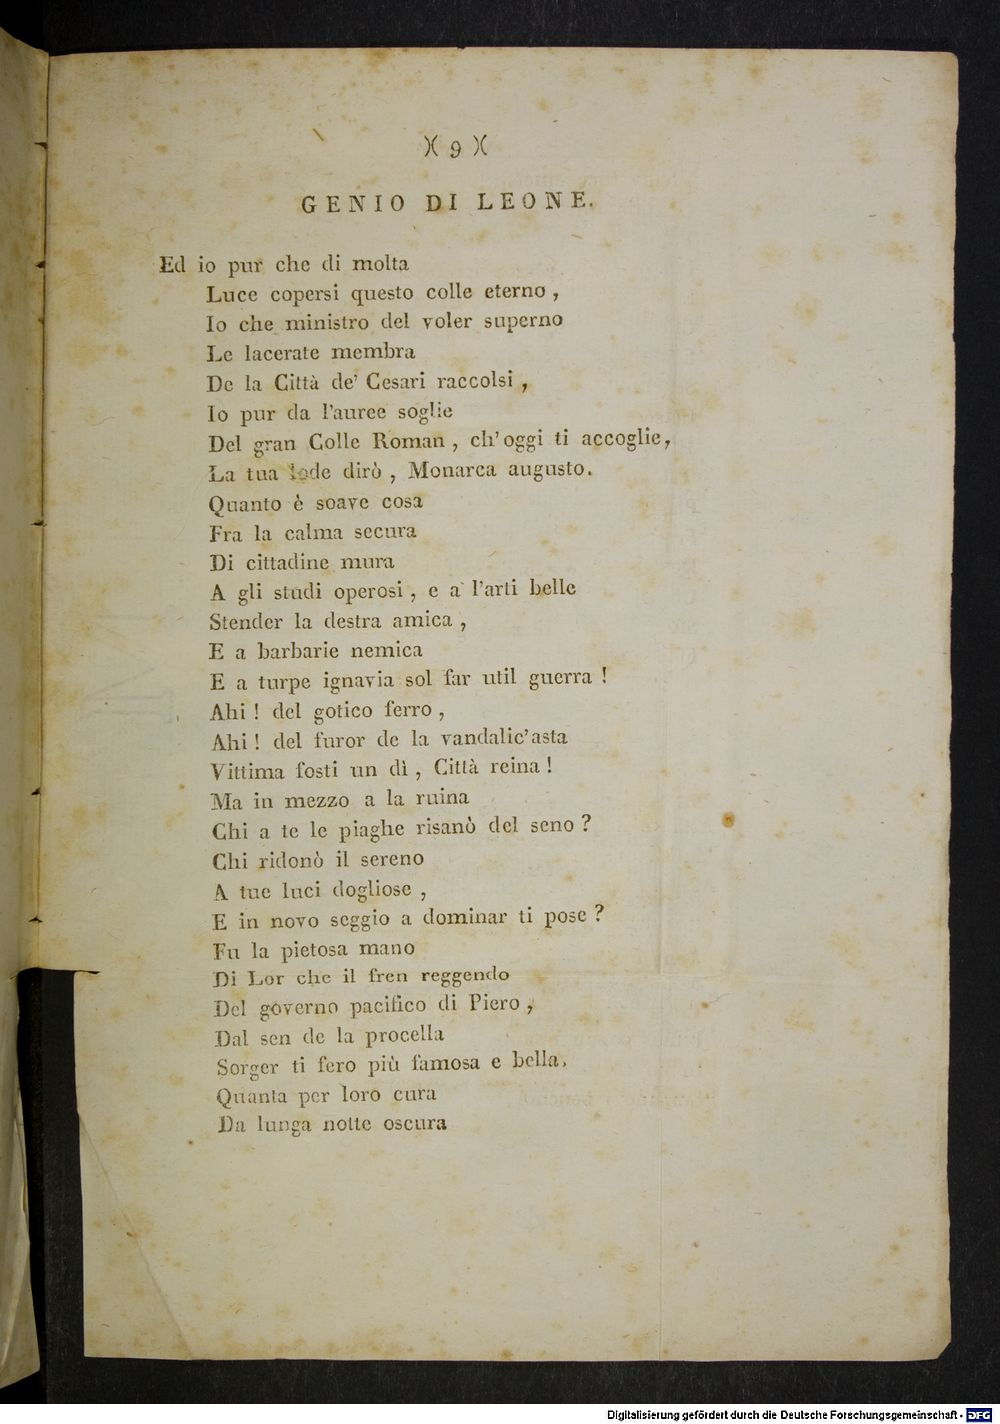 )( 9 )(
GENIO DI LEONE.
Ed io pur che di molta
Luce copersi questo colle eterno ,
Io che ministro del voler superno
Le lacerate membra
De la Città de' Cesari raccolsi ,
Io pur da l'auree soglie
Del gran Colle Roman , ch'oggi ti accoglie,
La tua lode dirò , Monarca augusto.
Quanto è soave cosa
Fra la calma secura
Di cittadine mura
A gli studi operosi , e a l'arti belle
Stender la destra amica ,
E a barbarie nemica
E a turpe ignavia sol far util guerra !
Ahi ! del gotico ferro ,
Ahi ! del furor de la vandalic'asta
Vittima fosti un dì , Città reina !
Ma in mezzo a la ruina
Chi a te le piaghe risanò del seno ?
Chi ridonò il sereno
A tue luci dogliose ,
E in novo seggio a dominar ti pose ?
Fu la pietosa mano
Di Lor che il fren reggendo
Del governo pacifico di Piero ,
Dal sen de la procella
Sorger ti fero più famosa e bella.
Quanta per loro cura
Da lunga notte oscura
Digitalisierung gefördert durch die Deutsche Forschungsgemeinschaft - DFG